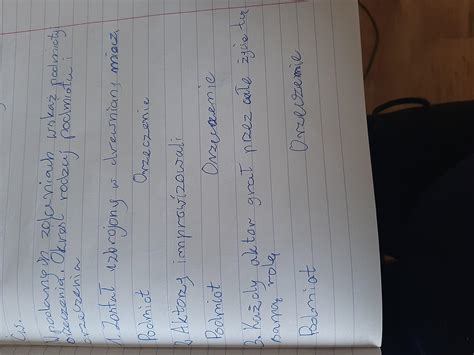 Ćw.
W podanych zdaniach wskaż podmioty i
orzeczenia. Określ rodzaj podmiotu i
orzeczenia
1. Został uzbrojony w drewniany miecz
Podmiot Orzeczenie
2. Aktorzy improwizowali
Podmiot Orzeczenie
3. Każdy aktor grał przez całe życie tę
samą rolę
Podmiot Orzeczenie